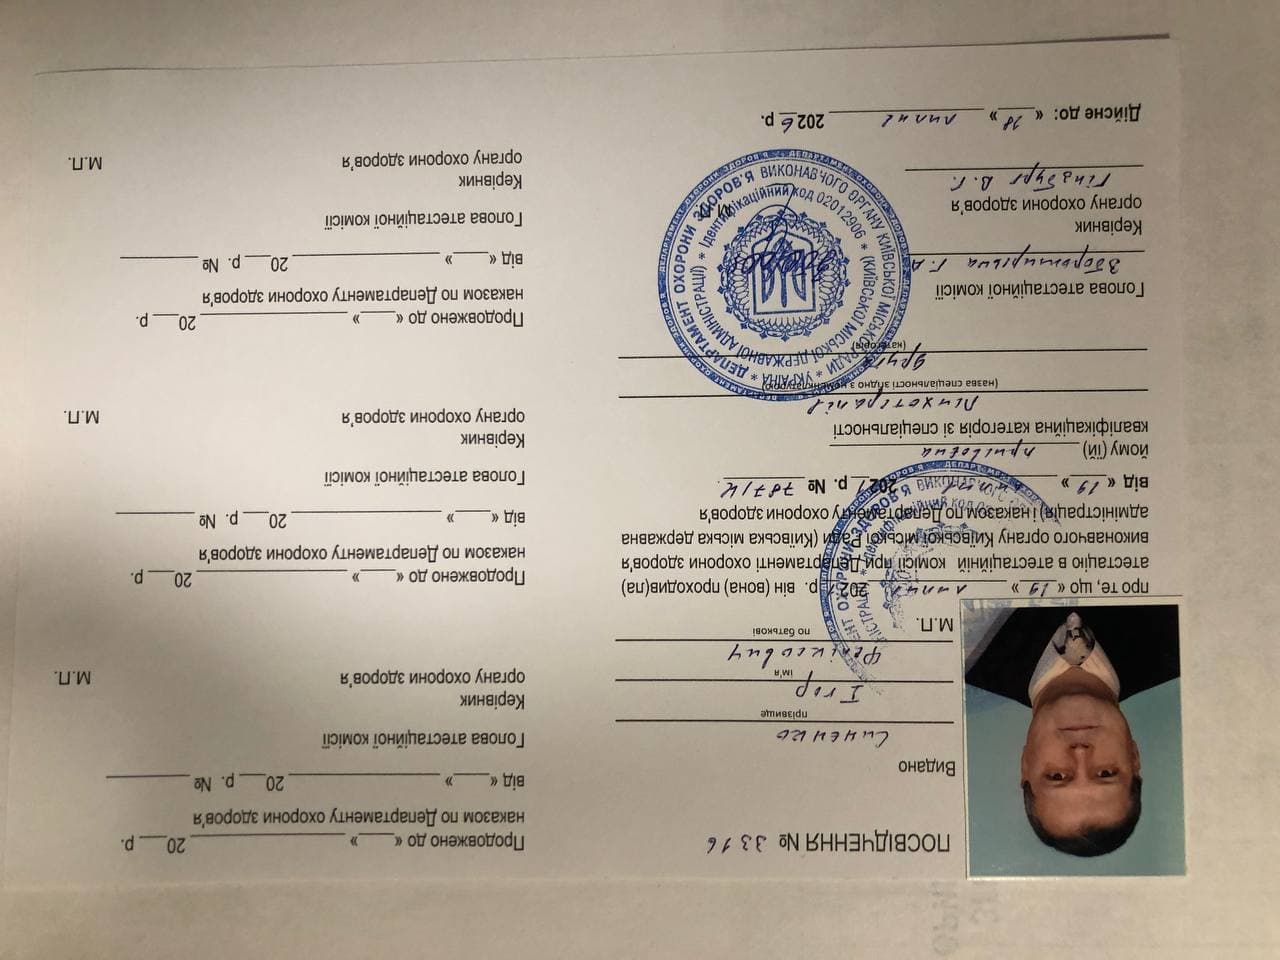 ПОСВІДЧЕННЯ № 3316
Видано
Синєнко
прізвище
Ігор
ім'я
Феліксович
по батькові
М.П.
про те, що «19» липня 2021 р. він (вона) проходив(ла)
атестацію в атестаційній комісії при Департаменті охорони здоров'я
виконавчого органу Київської міської Ради (Київська міська державна
адміністрація) і наказом по Департаменту охорони здоров'я
від «19» липня 2021 р. № 787/К.
йому (їй) присвоєна
кваліфікаційна категорія зі спеціальності
Психотерапія
(назва спеціальності згідно з номенклатурою)
друга
(категорія)
Голова атестаційної комісії
Г. А
Керівник
органу охорони здоров’я
Гінзбург В. Г.
М.П.
Дійсне до: «18» липня 2026 р.
* УКРАЇНА * ДЕПАРТАМЕНТ ОХОРОНИ ЗДОРОВ'Я ВИКОНАВЧОГО ОРГАНУ КИЇВСЬКОЇ МІСЬКОЇ РАДИ
(КИЇВСЬКОЇ МІСЬКОЇ ДЕРЖАВНОЇ АДМІНІСТРАЦІЇ) * Ідентифікаційний код 02012906 *
Продовжено до «____» ____________________ 20___ р.
наказом по Департаменту охорони здоров'я
від «____» ____________________ 20___ р. № __________
Голова атестаційної комісії
Керівник
органу охорони здоров’я М.П.
Продовжено до «____» ____________________ 20___ р.
наказом по Департаменту охорони здоров'я
від «____» ____________________ 20___ р. № __________
Голова атестаційної комісії
Керівник
органу охорони здоров’я М.П.
Продовжено до «____» ____________________ 20___ р.
наказом по Департаменту охорони здоров'я
від «____» ____________________ 20___ р. № __________
Голова атестаційної комісії
Керівник
органу охорони здоров’я М.П.